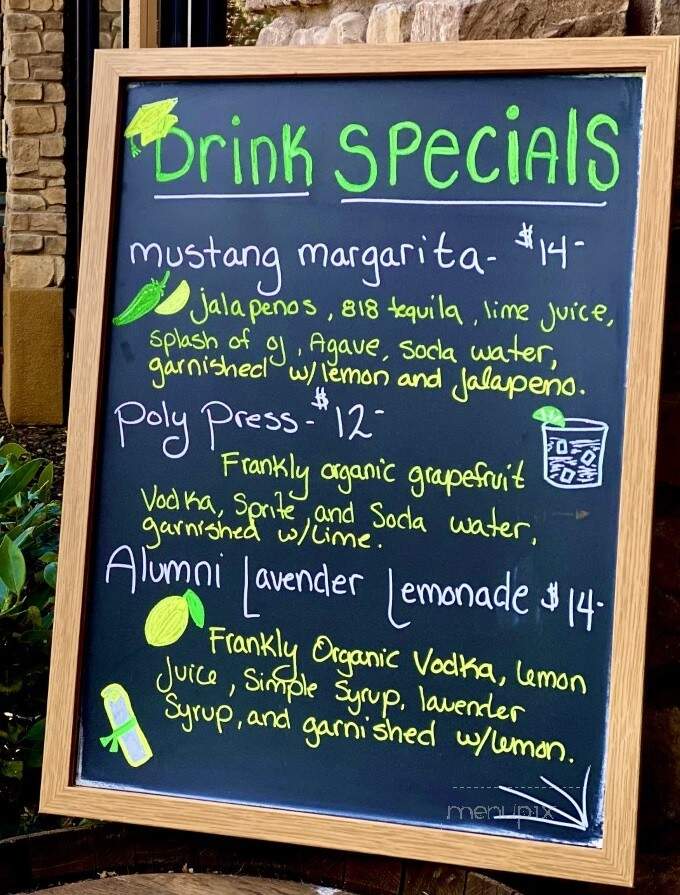 Drink Specials
mustang margarita- $14-
jalapenos, 818 tequila, lime juice,
splash of oj, Agave, Soda water,
garnished w/lemon and jalapeno.
Poly Press- $12-
Frankly organic grapefruit
Vodka, Sprite, and Soda water,
garnished w/Lime.
Alumni Lavender Lemonade $14-
Frankly Organic Vodka, Lemon
Juice, Simple Syrup, lavender
Syrup, and garnished w/lemon.
menupix